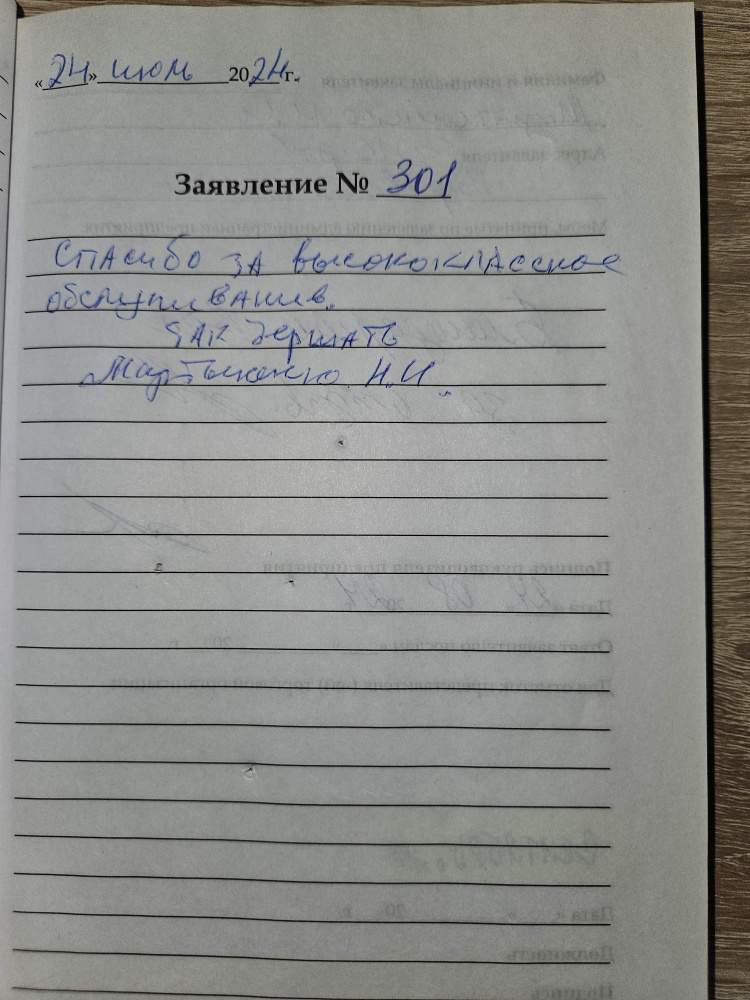 «24» июль 2024 г.
Заявление № 301
Спасибо за высококлассное
обслуживание.
Так держать
Мартыненко Н.И.